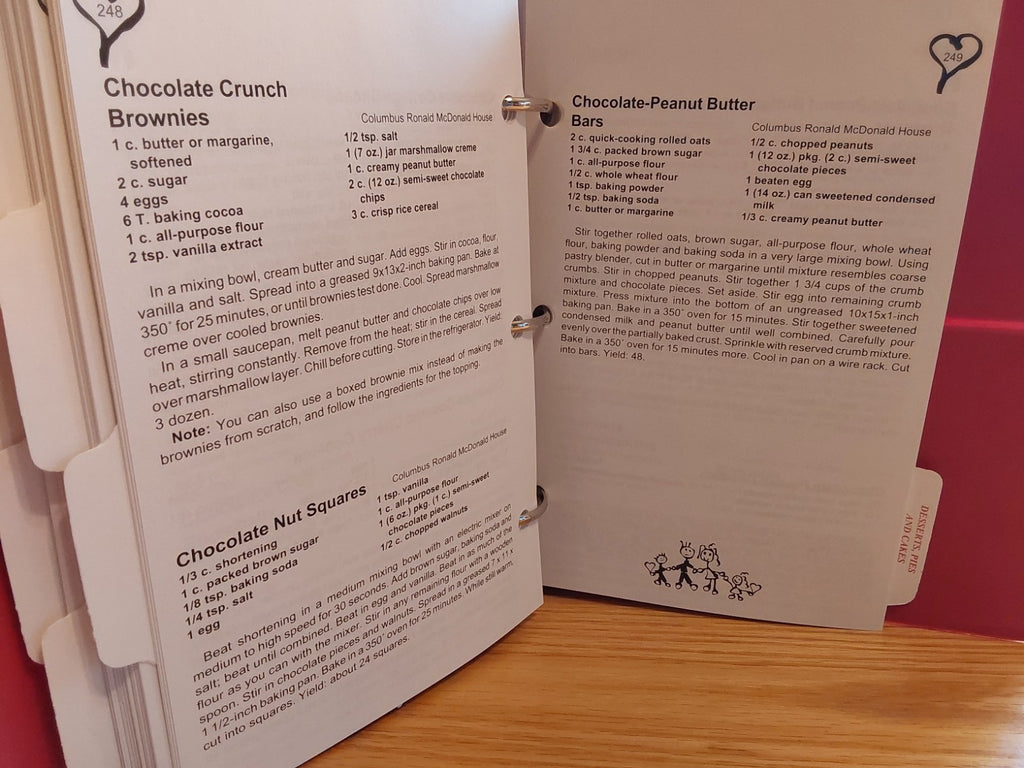 248
Chocolate Crunch
Brownies
Columbus Ronald McDonald House
1 c. butter or margarine,
softened
2 c. sugar
4 eggs
6 T. baking cocoa
1 c. all-purpose flour
2 tsp. vanilla extract
1/2 tsp. salt
1 (7 oz.) jar marshmallow creme
1 c. creamy peanut butter
2 c. (12 oz.) semi-sweet chocolate
chips
3 c. crisp rice cereal
In a mixing bowl, cream butter and sugar. Add eggs. Stir in cocoa, flour,
vanilla and salt. Spread into a greased 9x13x2-inch baking pan. Bake at
350˚ for 25 minutes, or until brownies test done. Cool. Spread marshmallow
creme over cooled brownies.
In a small saucepan, melt peanut butter and chocolate chips over low
heat, stirring constantly. Remove from the heat; stir in the cereal. Spread
over marshmallow layer. Chill before cutting. Store in the refrigerator. Yield:
3 dozen.
Note: You can also use a boxed brownie mix instead of making the
brownies from scratch, and follow the ingredients for the topping.
Chocolate Nut Squares
Columbus Ronald McDonald House
1/3 c. shortening
1 c. packed brown sugar
1/8 tsp. baking soda
1/4 tsp. salt
1 egg
1 tsp. vanilla
1 c. all-purpose flour
1 (6 oz.) pkg. (1 c.) semi-sweet
chocolate pieces
1/2 c. chopped walnuts
Beat shortening in a medium mixing bowl with an electric mixer on
medium to high speed for 30 seconds. Add brown sugar, baking soda and
salt; beat until combined. Beat in egg and vanilla. Beat in as much of the
flour as you can with the mixer. Stir in any remaining flour with a wooden
spoon. Stir in chocolate pieces and walnuts. Spread in a greased 7 x 11 x
1 1/2-inch baking pan. Bake in a 350˚ oven for 25 minutes. While still warm,
cut into squares. Yield: about 24 squares.
249
Chocolate-Peanut Butter
Bars
Columbus Ronald McDonald House
2 c. quick-cooking rolled oats
1 3/4 c. packed brown sugar
1 c. all-purpose flour
1/2 c. whole wheat flour
1 tsp. baking powder
1/2 tsp. baking soda
1 c. butter or margarine
1/2 c. chopped peanuts
1 (12 oz.) pkg. (2 c.) semi-sweet
chocolate pieces
1 beaten egg
1 (14 oz.) can sweetened condensed
milk
1/3 c. creamy peanut butter
Stir together rolled oats, brown sugar, all-purpose flour, whole wheat
flour, baking powder and baking soda in a very large mixing bowl. Using
pastry blender, cut in butter or margarine until mixture resembles coarse
crumbs. Stir in chopped peanuts. Stir together 1 3/4 cups of the crumb
mixture and chocolate pieces. Set aside. Stir egg into remaining crumb
mixture. Press mixture into the bottom of an ungreased 10x15x1-inch
baking pan. Bake in a 350˚ oven for 15 minutes. Stir together sweetened
condensed milk and peanut butter until well combined. Carefully pour
evenly over the partially baked crust. Sprinkle with reserved crumb mixture.
Bake in a 350˚ oven for 15 minutes more. Cool in pan on a wire rack. Cut
into bars. Yield: 48.
DESSERTS, PIES
AND CAKES